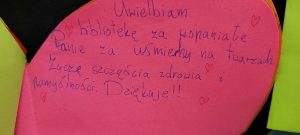 Uwielbiam
bibliotekę za wspaniałe
Panie za uśmiechy na twarzach
Życzę szczęścia zdrowia,
pomyślności. Dziękuję!!